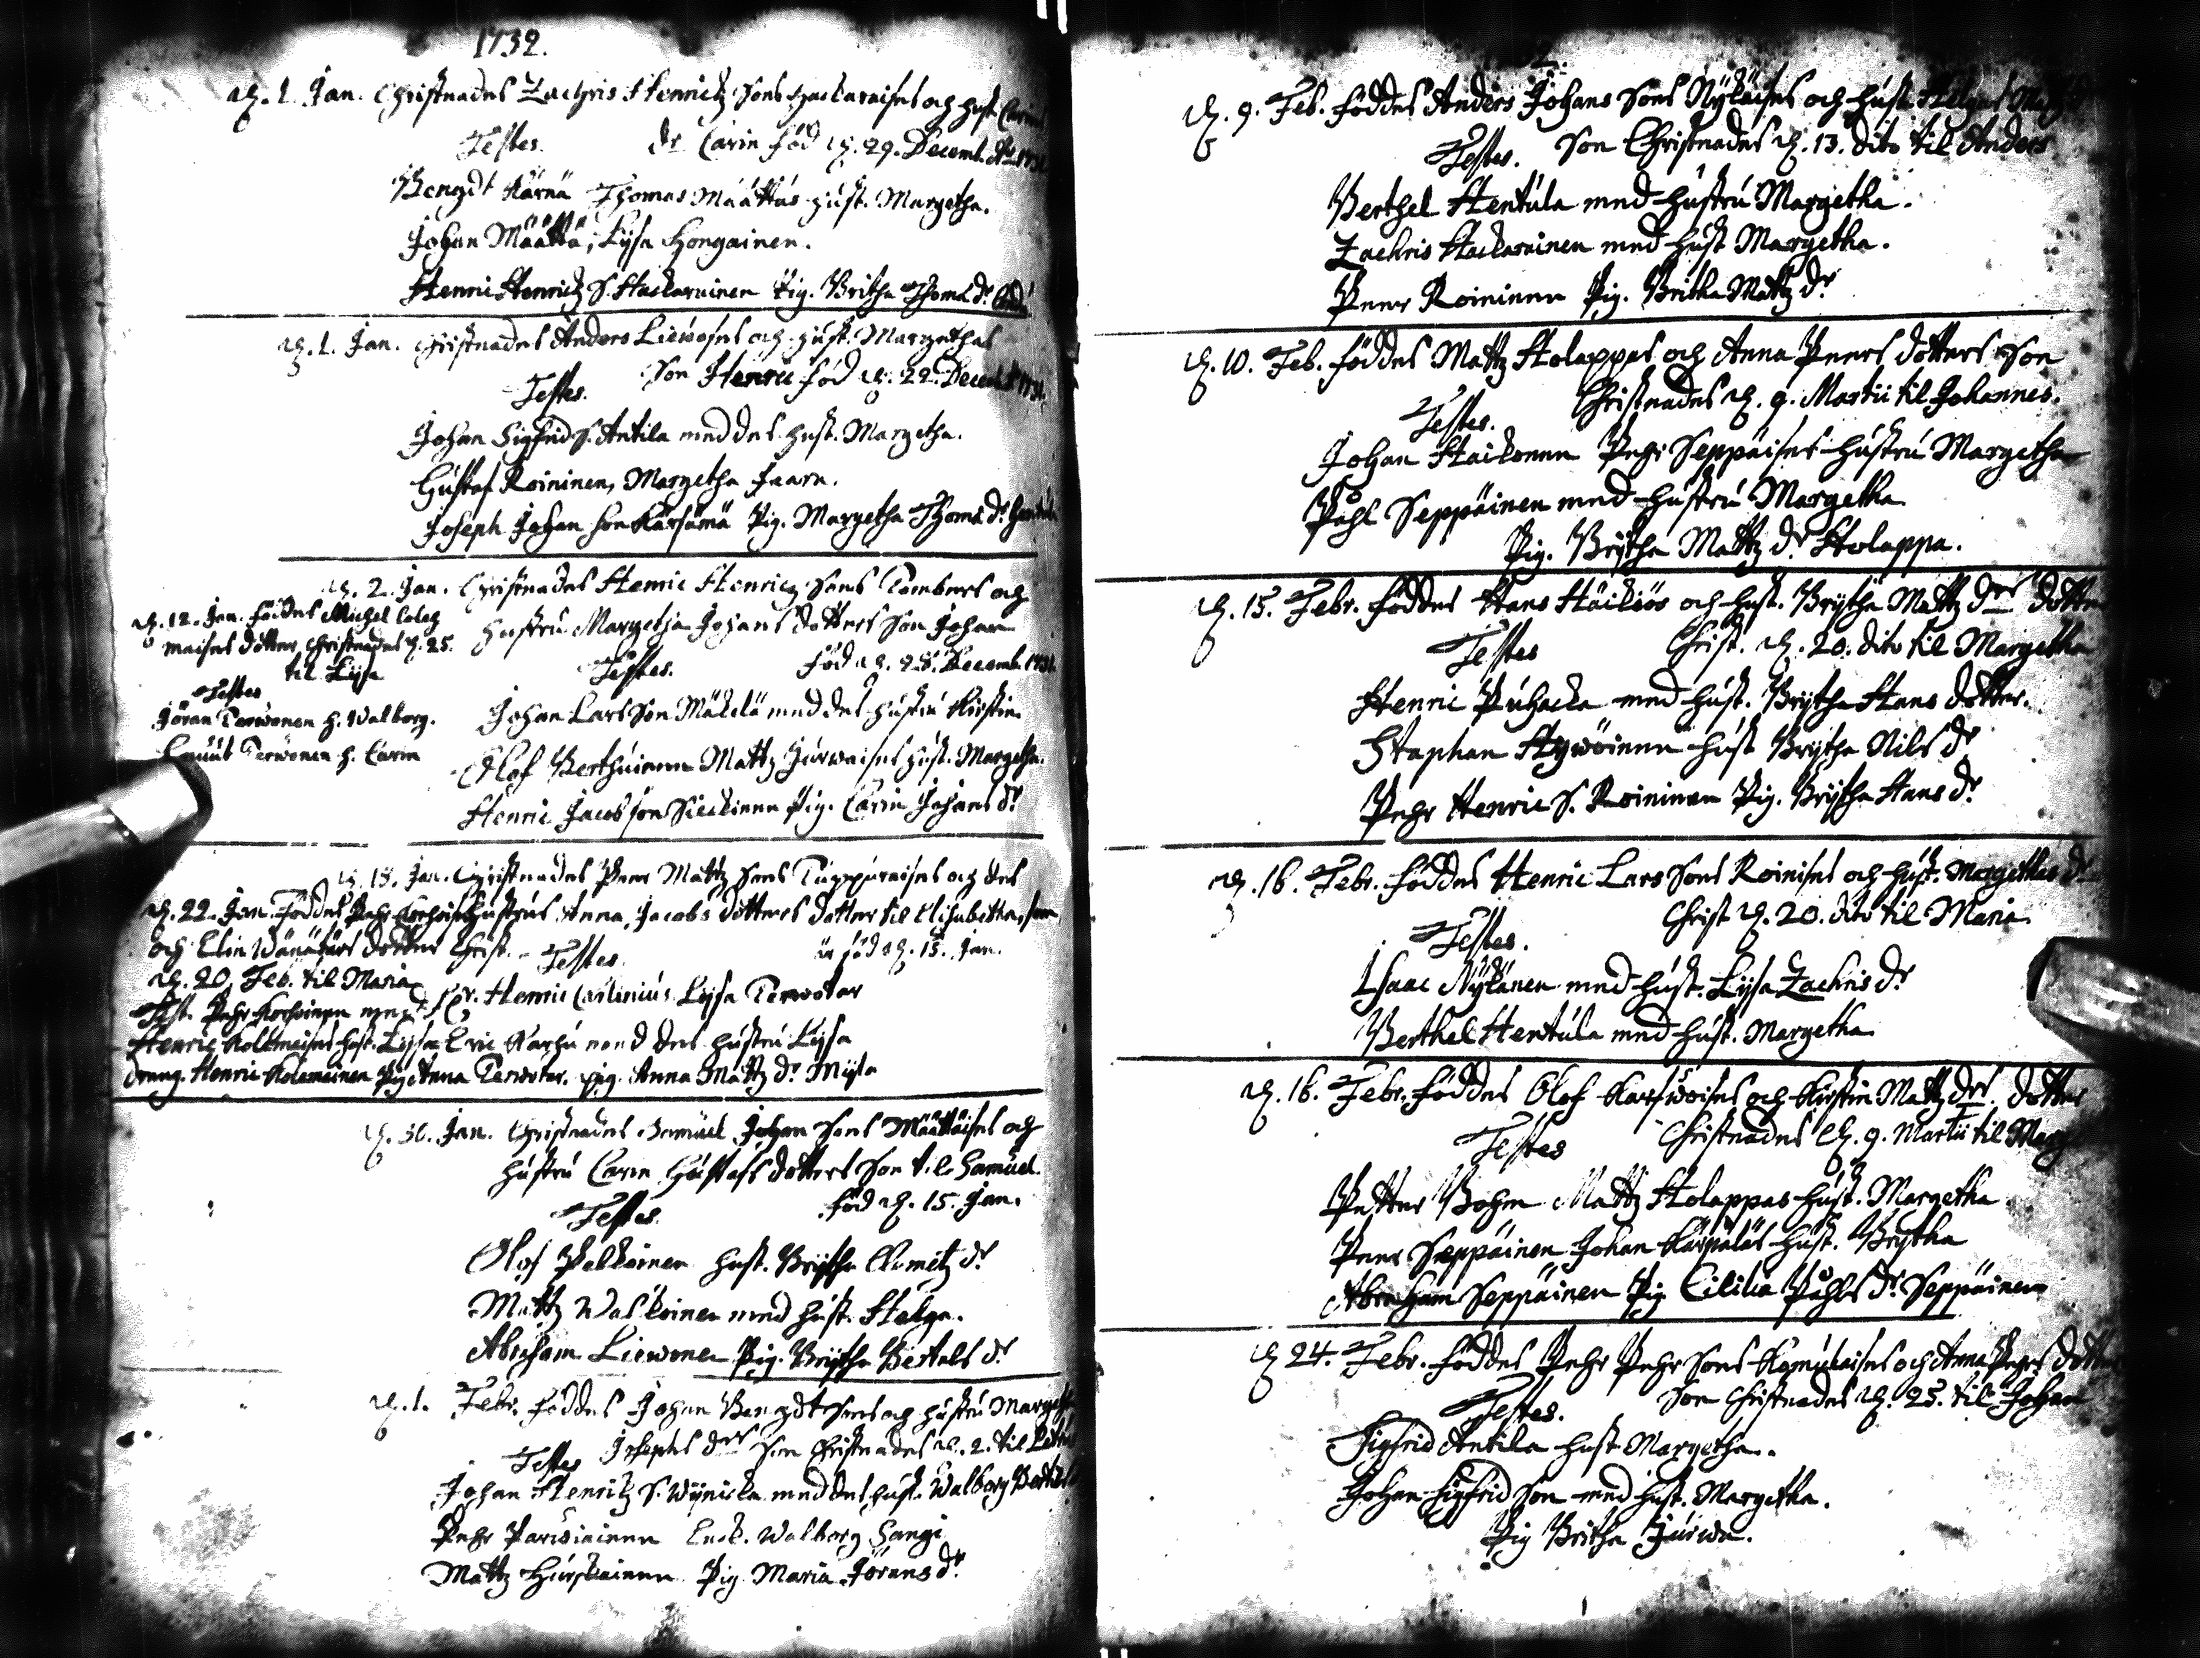 1732.
d. 1. Jan. Christnades Zachris Henrichz Sons Hackaraises och hust.
Testes. dr Carin föd d. 29. Decemb. Ao 1731
Bengdt Kärnä Thomas Määttäs hust. Margetha.
Johan Määttä, Lijsa Hongainen.
Henric Henrichz S. Hackarainen Pig. Britha Thoms dr
d. 1. Jan. Christnades Anders Liewoses och hust. Margethas
Son Henric föd d. 22. Decemb. 1731.
Testes.
Johan Sigfrid S. Antila med des hust. Margetha.
Gustaf Roininen, Margetha Jaarn.
Joseph Johan Son Kärsämä Pig. Margetha Thoms dr
d. 2. Jan. Christnades Henric Henrics Sons Tombers och
hustru Margetha Johans dotters Son Johan
Testes. föd d. 28. Decemb. 1731
Johan Lars Son Mäkelä med des hustru Kirstin
Olof Berthuinen Mattz Jurwaises hust. Margetha.
Henric Jacobs son Sickinen Pig. Carin Johans dr
d. 12. Jan. föddes Michel
maises dotter, Christnades d. 25.
til Lijsa
Testes
Jöran Terwonen h. Walborg.
Knuut Terwonen h. Carin
d. 15. Jan. Christnades Peer Mattz Sons Tuppuraises och des
hustrus Anna Jacobs dotters dotter til Elisabetha, som
Testes. är född d. 13. Jan.
Hr. Henric Carlenius Lijsa Terwotar
Eric Karhu med des hustru Lijsa
Pig. Anna Mattz dr Mijla
d. 22. Jan. föddes Pehr Korhoises
och Elin Wänätärs dotter Christ.
d. 20. Feb. til Maria
Test. Pehr Korhoinen med
Henric Kolemaises hust. Lijsa
dräng. Henric Kolemainen Pig. Anna Terwotar.
d. 30. Jan. Christnades Samuel Johan Sons Määttäises och
hustru Carin Gustafs dotters Son til Samuel.
Testes. föd d. 15. Jan.
Olof Pelkoinen hust. Brijtha Clemetz dr
Mattz Walkoinen med hust. Helga.
Abraham Liewonen Pig. Brijtha Bertels dr
d. 1. Febr. föddes Johan Bengdt Sons och hustru
Testes Josephs drs Son Christnades d. 2. til
Johan Henrichz S. Wijnicka med des hust. Walborg
Pehr Parwiainen Enck. Walborg Hangi
Mattz Hurskainen Pig. Maria Jörans dr
d. 9. Feb. föddes Anders Johans Sons Nyläises och hust. Helgas
Testes. Son Christnades d. 13. dito til Anders
Berthel Hentula med hustru Margetha.
Zachris Hackarainen med hust Margetha.
Peer Roininen Pig. Britha Mattz dr
d. 10. Feb. föddes Mattz Holappas och Anna Peers dotters Son
Testes. Christnades d. 9. Martii til Johannes.
Johan Haikonen Pehr Seppäises hustru Margetha
Påhl Seppäinen med hustru Margetha
Pig. Brijtha Mattz dr Holappa.
d. 15. Febr. föddes Hans Häiköös och hust. Brijtha Mattz drs dotter
Testes Christ. d. 20. dito til Margetha
Henric Puhacka med hust. Brijtha Hans dotter.
Staphan Hywöinen hust Brijtha Nils dr
Pehr Henric S. Roininen Pig. Brijtha Hans dr
d. 16. Febr. föddes Henric Lars Sons Roinises och hust. Margethas dr
Testes. Christ d. 20. dito til Maria
Isaac Nylänen med hust. Lijsa Zachris dr
Berthel Hentula med hust. Margetha
d. 16. Febr. föddes Olof Karfwoises och Kirstin Mattz drs. dotter
Testes Christnades d. 9. Martii til
Petter Bohm Mattz Holappas hust. Margetha
Peer Seppäinen Johan Kärpäläs hust. Brytha
Abraham Seppäinen Pig Cicilia Påhls dr Seppäinen
d 24. Febr. föddes Pehr Pehr Sons Komulaises och Anna Pehrs dotters
Testes. Son Christnades d. 25. til Johan
Sigfrid Antila hust Margetha.
Johan Sigfrid Son med hust. Margetha.
Pig Britha Jurwa.